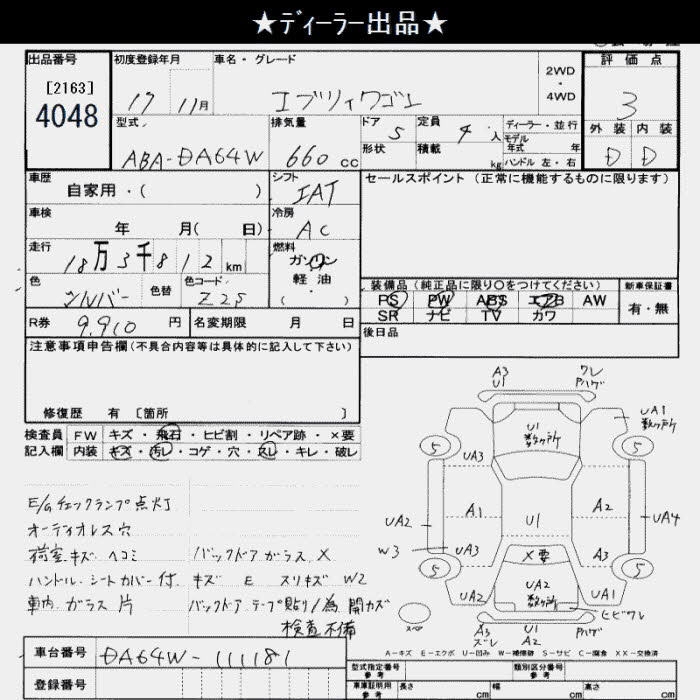 ★ディーラー出品★
出品番号
[2163]
4048
初度登録年月
17 11月
車名・グレード
エブリィワゴン
2WD
・
4WD
評価点
3
外装 内装
D D
型式
ABA-DA64W
排気量
660 cc
ドア 5
定員 4 人
形状
積載 kg
ディーラー・並行
モデル年式 年
ハンドル 左・右
車歴
自家用・( )
シフト
IAT
セールスポイント (正常に機能するものに限ります)
車検
年 月( 日)
冷房
AC
走行
18万3千812km
燃料
ガソリン
軽油
・
色
シルバー
色替
色コード
Z2S
装備品 (純正品に限り○をつけてください)
PS PW ABS エアB AW
SR ナビ TV カワ
新車保証書
有・無
R券 9,910 円
名変期限 月 日
後日品
注意事項申告欄(不具合内容等は具体的に記入して下さい)
修復歴 有 [箇所 ]
検査員記入欄
FW キズ・飛石・ヒビ割・リペア跡・×要
内装 キズ・汚レ・コゲ・穴・スレ・キレ・破レ
E/Gチェックランプ点灯
オーディオレス穴
荷室キズ ヘコミ バックドアガラス X
ハンドル・シートカバー付 キズ E スリキズ W2
車内 ガラス 片 バックドア テープ貼り/為 開カズ
検査不備
A3
U1
ワレ
Pハゲ
UA1
数ヶ所
U1
数ヶ所
5
5
UA3
A1
U1
A2
UA2
UA4
W3
UA3
×要
A3
5
5
UA2
UA2
数ヶ所
UA1
ヒビワレ
スペア
A3
ズレ
U1
A2
Pハゲ
A-キズ E-エクボ U-凹み W-補修跡 S-サビ C-腐食 XX-交換済
車台番号 DA64W-111181
登録番号
型式指定番号
参考
類別区分番号
参考
車庫証明用
参考
長さ cm
幅 cm
高さ cm